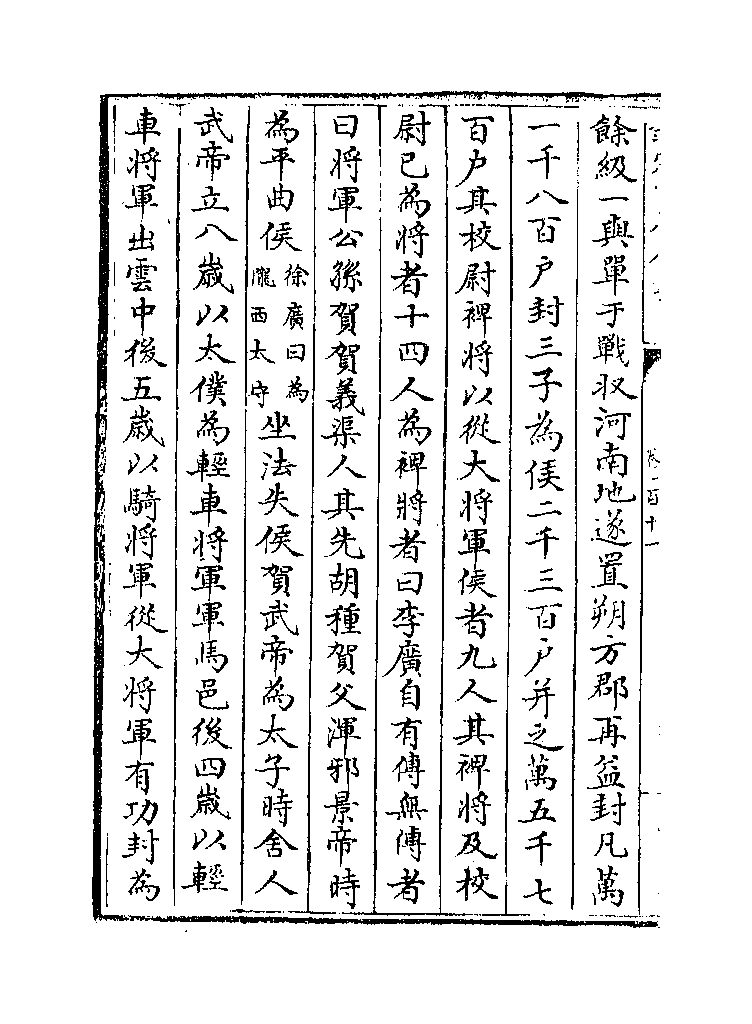 餘級一與單于戰収河南地遂置朔方郡再益封凡萬
一千八百户封三子為侯二千三百户并之萬五千七
百户其校尉裨将以從大將軍侯者九人其裨将及校
尉已為将者十四人為裨將者曰李廣自有傳無傳者
曰將軍公孫賀賀義渠人其先胡種賀父渾邪景帝時
為平曲侯徐廣曰為隴西太守坐法失侯賀武帝為太子時舍人
武帝立八嵗以太僕為輕車將軍軍馬邑後四嵗以輕
車將軍出雲中後五嵗以騎將軍從大將軍有功封為
卷一百十一